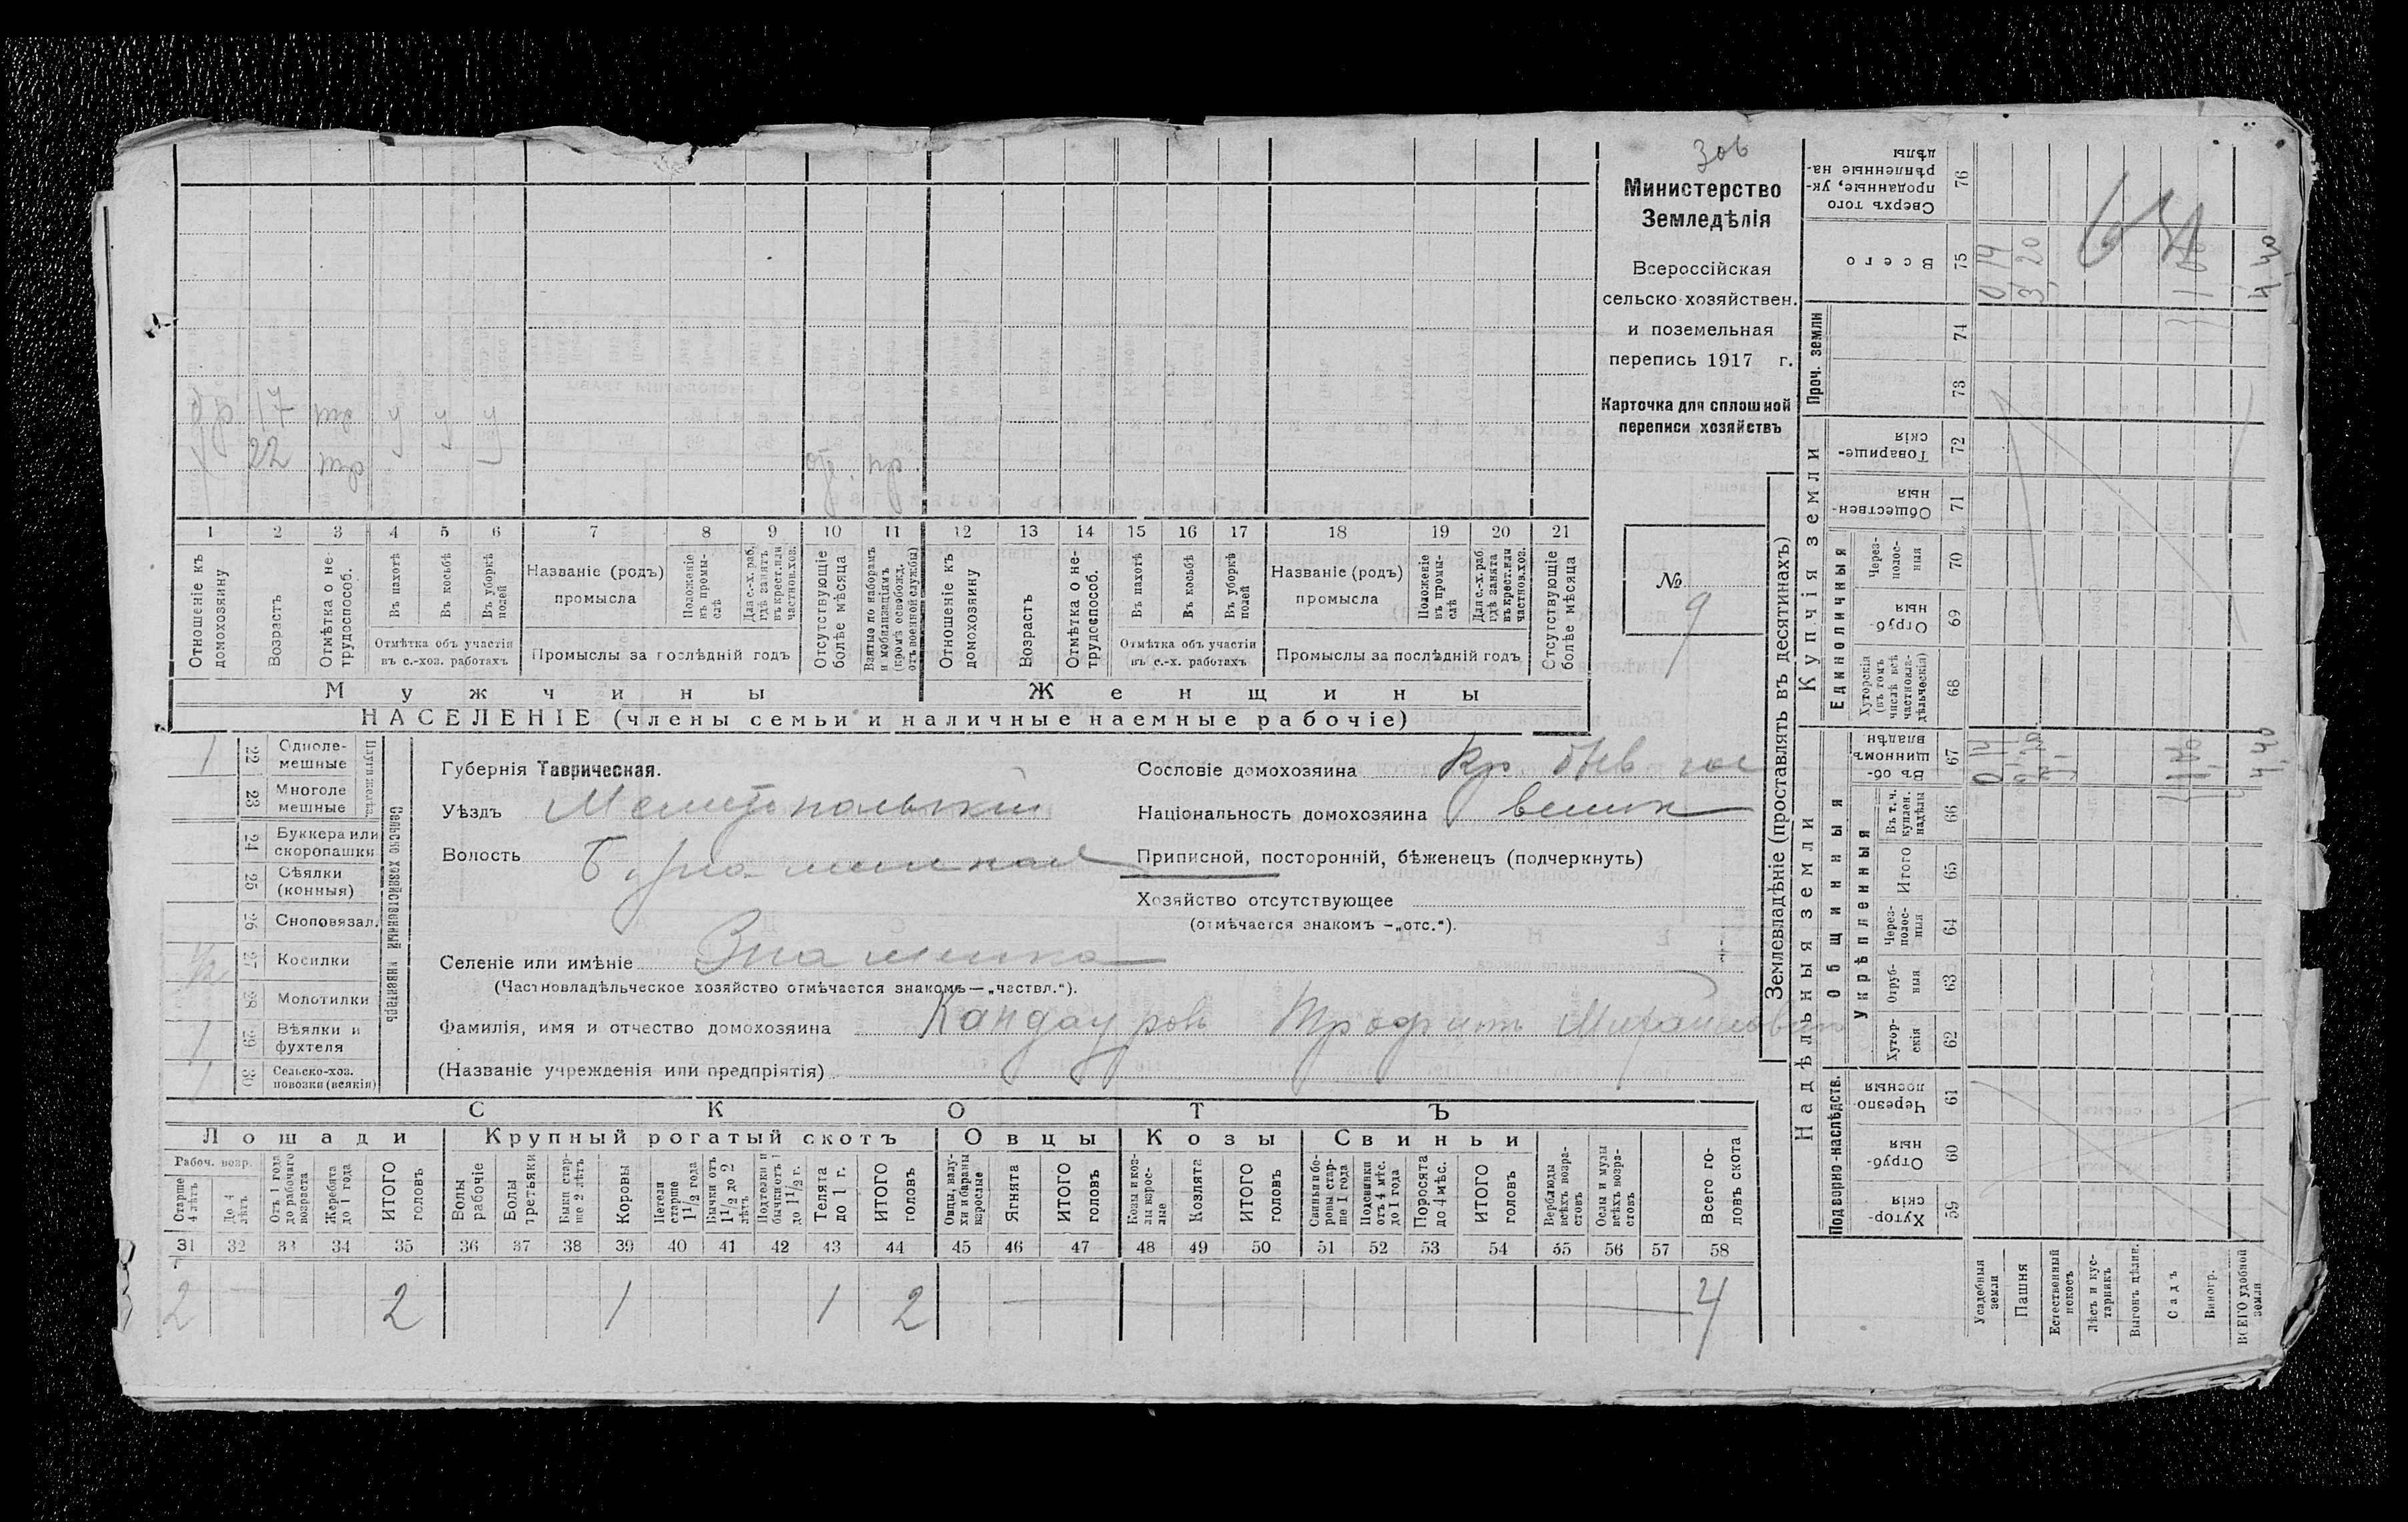 306
Министерство
Земледѣлія
Всероссійская
сельско-хозяйствен.
и поземельная
перепись 1917 г.
Карточка для сплошной
переписи хозяйствъ
№ 9
17
22
1 2 3 4 5 6 7 8 9 10 11 12 13 14 15 16 17 18 19 20 21
Отношеніе къ домохозяину
Возрастъ
Отмѣтка о нетрудоспособ.
Въ пахотѣ
Въ косьбѣ
Въ уборкѣ полей
Отмѣтка объ участіи въ с.-хоз. работахъ
Названіе (родъ) промысла
Положеніе въ промыслѣ
Для с.-х. раб. гдѣ занятъ въ крест. или частнов. хоз.
Промыслы за послѣдній годъ
Отсутствующіе болѣе мѣсяца
Взятые по наборамъ и мобилизаціямъ (кромѣ освобожд. отъ военной службы)
Отношеніе къ домохозяину
Возрастъ
Отмѣтка о нетрудоспособ.
Въ пахотѣ
Въ косьбѣ
Въ уборкѣ полей
Отмѣтка объ участіи въ с.-х. работахъ
Названіе (родъ) промысла
Положеніе въ промыслѣ
Для с.-х. раб. гдѣ занята въ крест. или частнов. хоз.
Промыслы за послѣдній годъ
Отсутствующіе болѣе мѣсяца
Мужчины
Женщины
НАСЕЛЕНІЕ (члены семьи и наличные наемные рабочіе)
Сельско хозяйственный инвентарь
1 22 Однолемешные
23 Многолемешные
24 Буккера или скоропашки
25 Сѣялки (конныя)
26 Сноповязал.
1/2 27 Косилки
28 Молотилки
1 29 Вѣялки и фухтеля
1 30 Сельско-хоз. повозки (всякія)
Губернія Таврическая.
Уѣздъ Мелитопольскій
Волость
Селеніе или имѣніе Знаменка
(Частновладѣльческое хозяйство отмѣчается знакомъ—„частвл.“).
Фамилія, имя и отчество домохозяина Кандауровъ Трофимъ Михайловичъ
(Названіе учрежденія или предпріятія)
Сословіе домохозяина Кр. быв. гос
Національность домохозяина велик
Приписной, посторонній, бѣженецъ (подчеркнуть)
Хозяйство отсутствующее
(отмѣчается знакомъ —„отс.“).
СКОТЪ
Лошади Крупный рогатый скотъ Овцы Козы Свиньи
Рабоч. возр.
Старше 4 лѣтъ
До 4 лѣтъ
Отъ 1 года до рабочаго возраста
Жеребята до 1 года
ИТОГО головъ
Волы рабочіе
Волы третьяки
Быки старше 2 лѣтъ
Коровы
Нетели старше 1 1/2 года
Бычки отъ 1 1/2 до 2 лѣтъ
Подтелки и бычки отъ 1 до 1 1/2 г.
Телята до 1 г.
ИТОГО головъ
Овцы, валухи и бараны взрослые
Ягнята
ИТОГО головъ
Козы и козлы взрослые
Козлята
ИТОГО головъ
Свиньи и боровы старше 1 года
Подсвинки отъ 4 мѣс. до 1 года
Поросята до 4 мѣс.
ИТОГО головъ
Верблюды всѣхъ возрастовъ
Ослы и мулы всѣхъ возрастовъ
Всего головъ скота
31 32 33 34 35 36 37 38 39 40 41 42 43 44 45 46 47 48 49 50 51 52 53 54 55 56 57 58
2 2 1 1 2 4
Землевладѣніе (проставлять въ десятинахъ)
Надѣльныя земли
Купчія земли
Проч. земли
Подворно-наслѣдств.
Общинныя
Укрѣпленныя
Единоличныя
Сверхъ того проданные, укрѣпленные надѣлы 76
Всего 75
74
73
Товарищескія 72
Общественныя 71
Черезполосныя 70
Отрубныя 69
Хуторскія (въ томъ числѣ всѣ частновладѣльческія) 68
Въ общинномъ владѣн. 67
Въ т. ч. куплен. надѣлы 66
Итого 65
Черезполосныя 64
Отрубныя 63
Хуторскія 62
Черезполосныя 61
Отрубныя 60
Хуторскія 59
Усадебныя земли
Пашня
Естественный покосъ
Лѣсъ и кустарникъ
Выгонъ цѣлин.
Садъ
Виногр.
ВСЕГО удобной земли
0 14
3 20
4,40
0 14
4,40